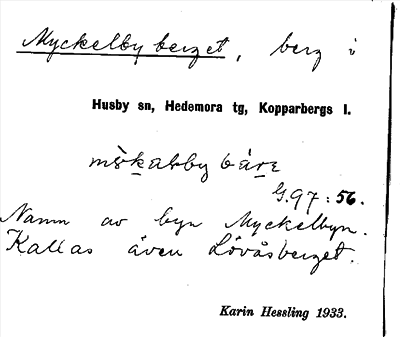 Myckelbyberget, berg i
Husby sn, Hedemora tg, Kopparbergs l.
G.97:56.
Namn av byn Myckelbyn.
Kallas även Lövåsberget.
Karin Hessling 1933.